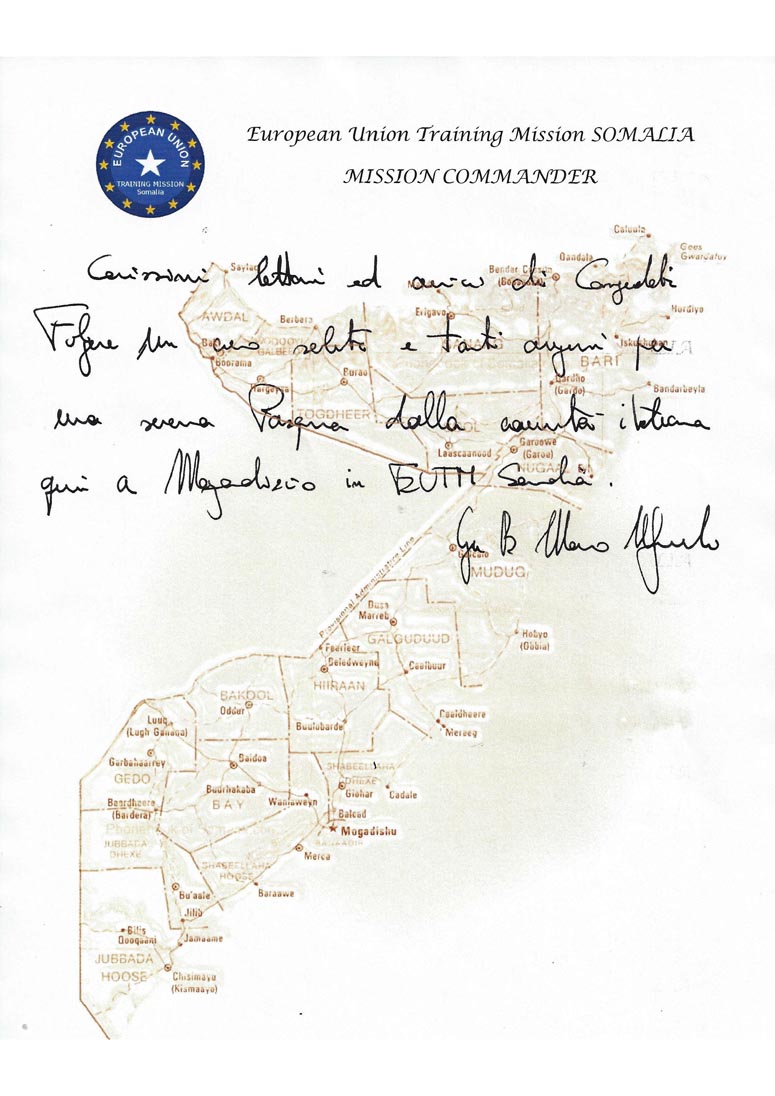 EUROPEAN UNION
TRAINING MISSION
Somalia
European Union Training Mission SOMALIA
MISSION COMMANDER
Carissimi lettori ed amici di Congedati
Folgore un caro saluto e tanti auguri per
una serena Pasqua dalla comunità italiana
qui a Mogadiscio in EUTM Somalia.
Gen B Massimo
Caluula
Gees Gwardafuy
Qandala
Bender
Hurdiyo
Erigavo
AWDAL
Berbera
Boorama
BARI
Burao
Gardho
(Gardo)
Bandarbeyla
Hargeysa
TOGDHEER
Laascaanood
Garoowe
(Garoe)
NUGAAL
Provisional Administrative Line
MUDUG
Dusa
Marreb
GALGUDUUD
Hobyo
(Obbia)
Feerfeer
Beledweyne
Ceelbuur
HIIRAAN
BAKOOL
Oddur
Buulobarde
Ceeldheere
Mereeg
Luuq
(Lugh Ganana)
Garbahaarrey
Baidoa
SHABEELLAHA
DHEXE
GEDO
Buurhakaba
BAY
Wanlaweyn
Giohar
Cadale
Baardheere
(Bardera)
Balcad
Mogadishu
JUBBADA
DHEXE
Merca
SHABEELLAHA
HOOSE
Bu'aale
Baraawe
Jilib
Bilis
Qooqaani
Jamaame
JUBBADA
HOOSE
Chisimayu
(Kismaayo)